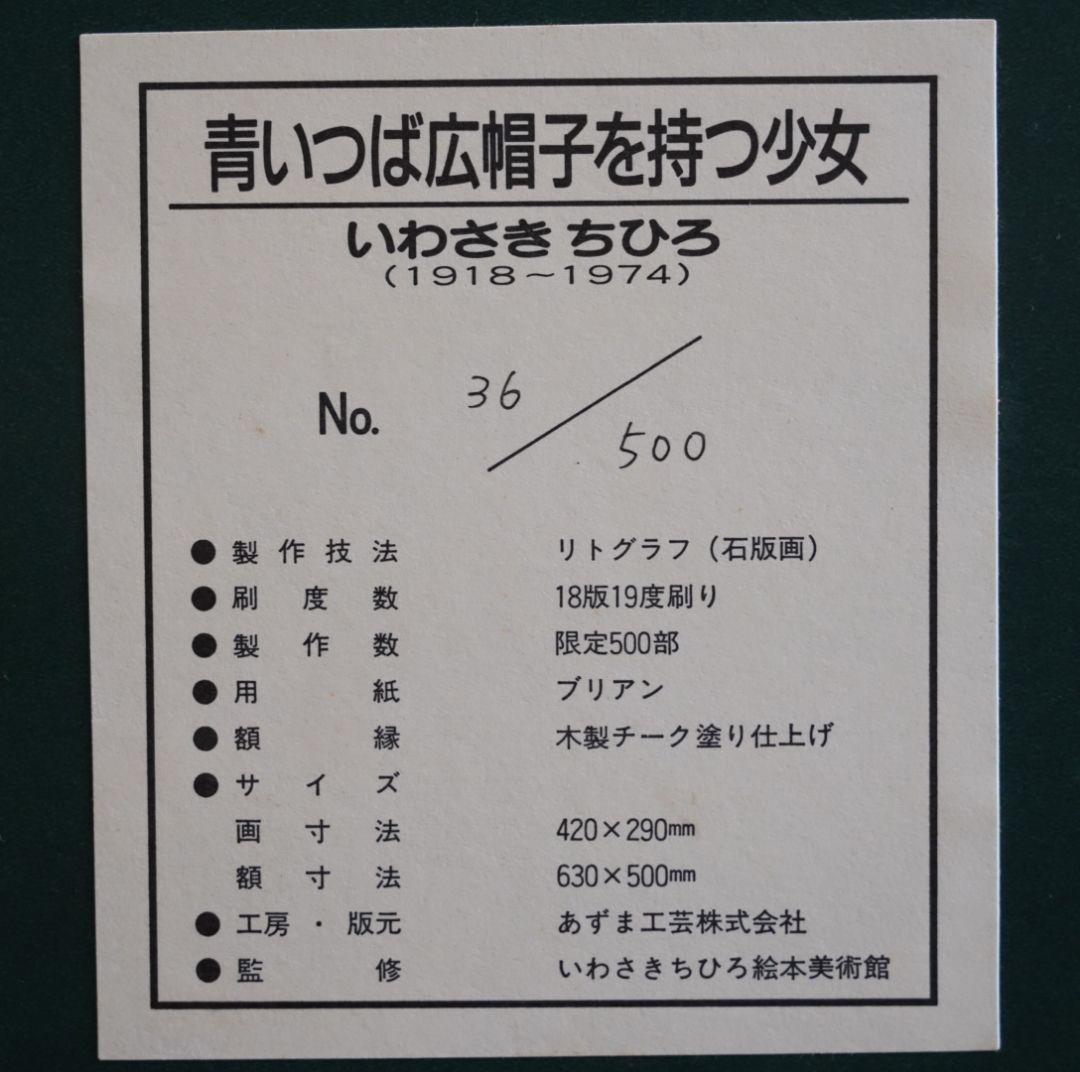 青いつば広帽子を持つ少女
いわさき ちひろ
(1918～1974)
No. 36/500
●製作技法 リトグラフ（石版画）
●刷度数 18版19度刷り
●製作数 限定500部
●用紙 ブリアン
●額縁 木製チーク塗り仕上げ
●サイズ
画寸法 420×290㎜
額寸法 630×500㎜
●工房・版元 あずま工芸株式会社
●監修 いわさきちひろ絵本美術館